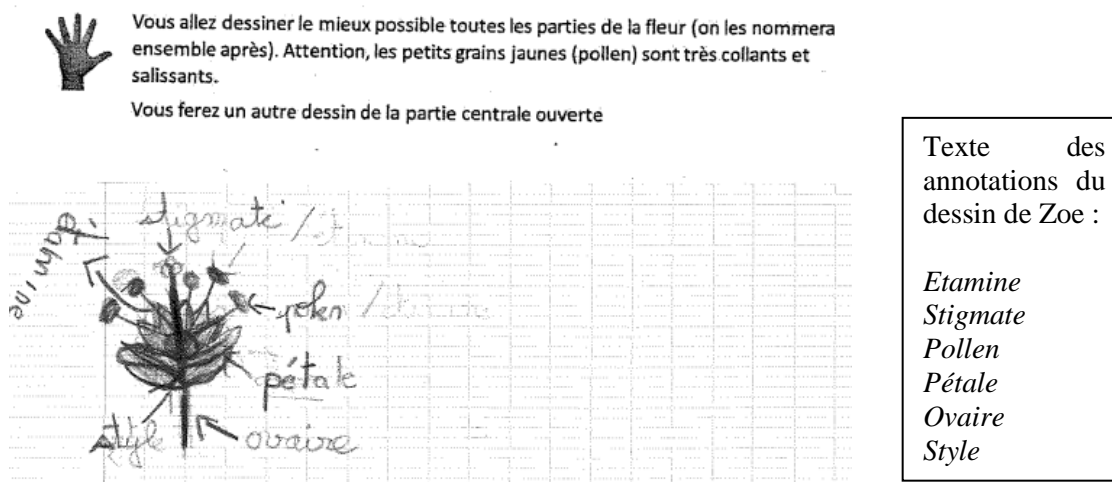 Vous allez dessiner le mieux possible toutes les parties de la fleur (on les nommera
ensemble après). Attention, les petits grains jaunes (pollen) sont très collants et
salissants.
Vous ferez un autre dessin de la partie centrale ouverte
stigmate /
étamine
polen / étamine
pétale
style
ovaire
Texte des
annotations du
dessin de Zoe :
Etamine
Stigmate
Pollen
Pétale
Ovaire
Style